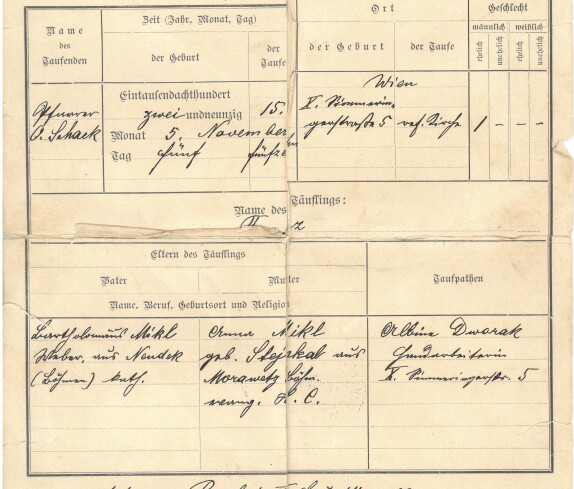 Name
des
Taufenden
Zeit (Jahr, Monat, Tag)
der Geburt
der
Taufe
Ort
der Geburt
der Taufe
Geschlecht
männlich
weiblich
ehelich
unehelich
ehelich
unehelich
Pfarrer
O. Schack
Eintausendachthundert
zwei undneunzig
15.
Monat 5. November
Tag fünf
Wien
X. Simmerin-
gerstraße 5
ref. Kirche
1 – – –
Name des Täuflings:
Eltern des Täuflings
Vater
Mutter
Taufpathen
Name, Beruf, Geburtsort und Religion
Bartholomäus Mikl
Weber, aus Neudek
(Böhmen) kath.
Anna Mikl
geb. Stejskal aus
Morawetz Böhm.
evang. H. C.
Albine Dworak
Handarbeiterin
X. Simmeringerstr. 5